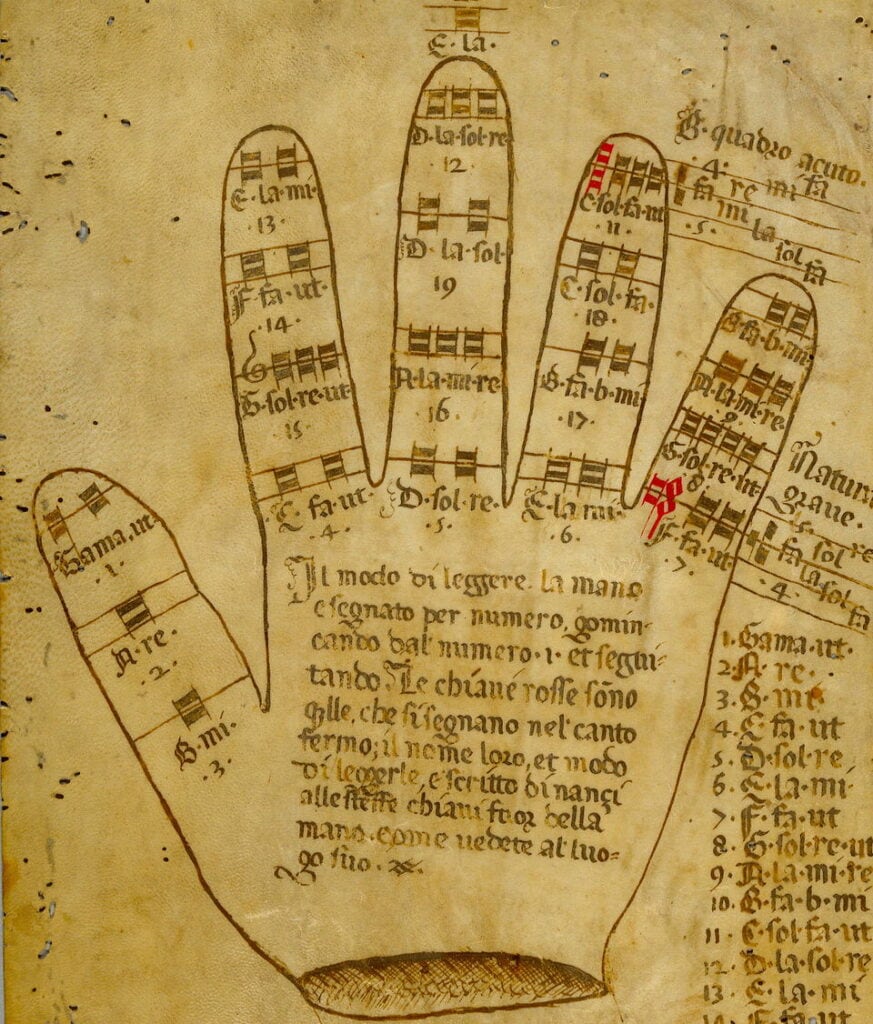 E·la·
D·la·sol·re
·12·
E·la·mi·
·13·
C·sol·fa·ut
11·
♮·quadro acuto·
·4·
fa re mi fa
mi
·5·
la
sol
fa
D·la·sol·
19
F·fa·ut·
·14·
C·sol·fa·
·18·
B·fa·b·mi·
A·la·mi·re·
16
G·sol·re·ut
·15·
B·fa·b·mi
·17·
A·la·mi·re·
·9·
G·sol·re·ut
·8·
D·sol·re·
·5·
C·fa·ut·
·4·
E·la·mi·
·6·
F·fa·ut·
·7·
Natura
grave·
·5·
fa sol re
·4·
la sol fa
Gama·ut·
·1·
A·re·
·2·
B·mi·
·3·
Il modo di leggere la mano
e segnato per numero, gomin-
cando dal numero·1·et segui-
tando Le chiave rosse sono
qlle, che si segnano nel canto
fermo; il nome loro, et modo
di leggerle, e scritto dinanzi
alle stesse chiavi fuor della
mano·come vedete al luo-
go suo·
1·Gama·ut·
2·A·re·
3·B·mi·
4·C·fa·ut
5·D·sol·re
6·E·la·mi·
7·F·fa·ut
8·G·sol·re·ut
9·A·la·mi·re
10·B·fa·b·mi
11·C·sol·fa·ut
12·D·la·sol·re
13·E·la·mi
14·F·fa·ut